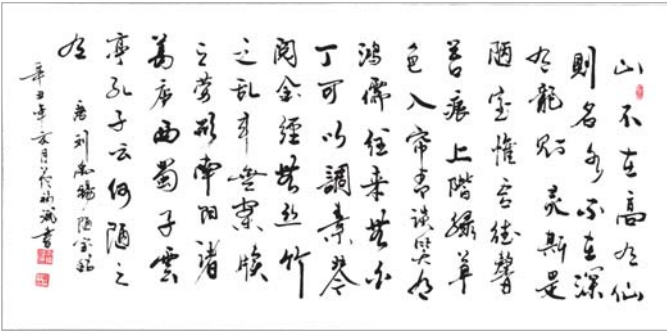 山不在高有仙
則名水不在深
有龍则灵斯是
陋室惟吾德馨
苔痕上階綠草
色入帘青談笑有
鴻儒往来無白
丁可以調素琴
閱金經無丝竹
之乱耳無案牘
之勞形南阳诸
葛庐西蜀子雲
亭孔子云何陋之
有
唐刘禹锡陋室铭
辛丑年亥月書